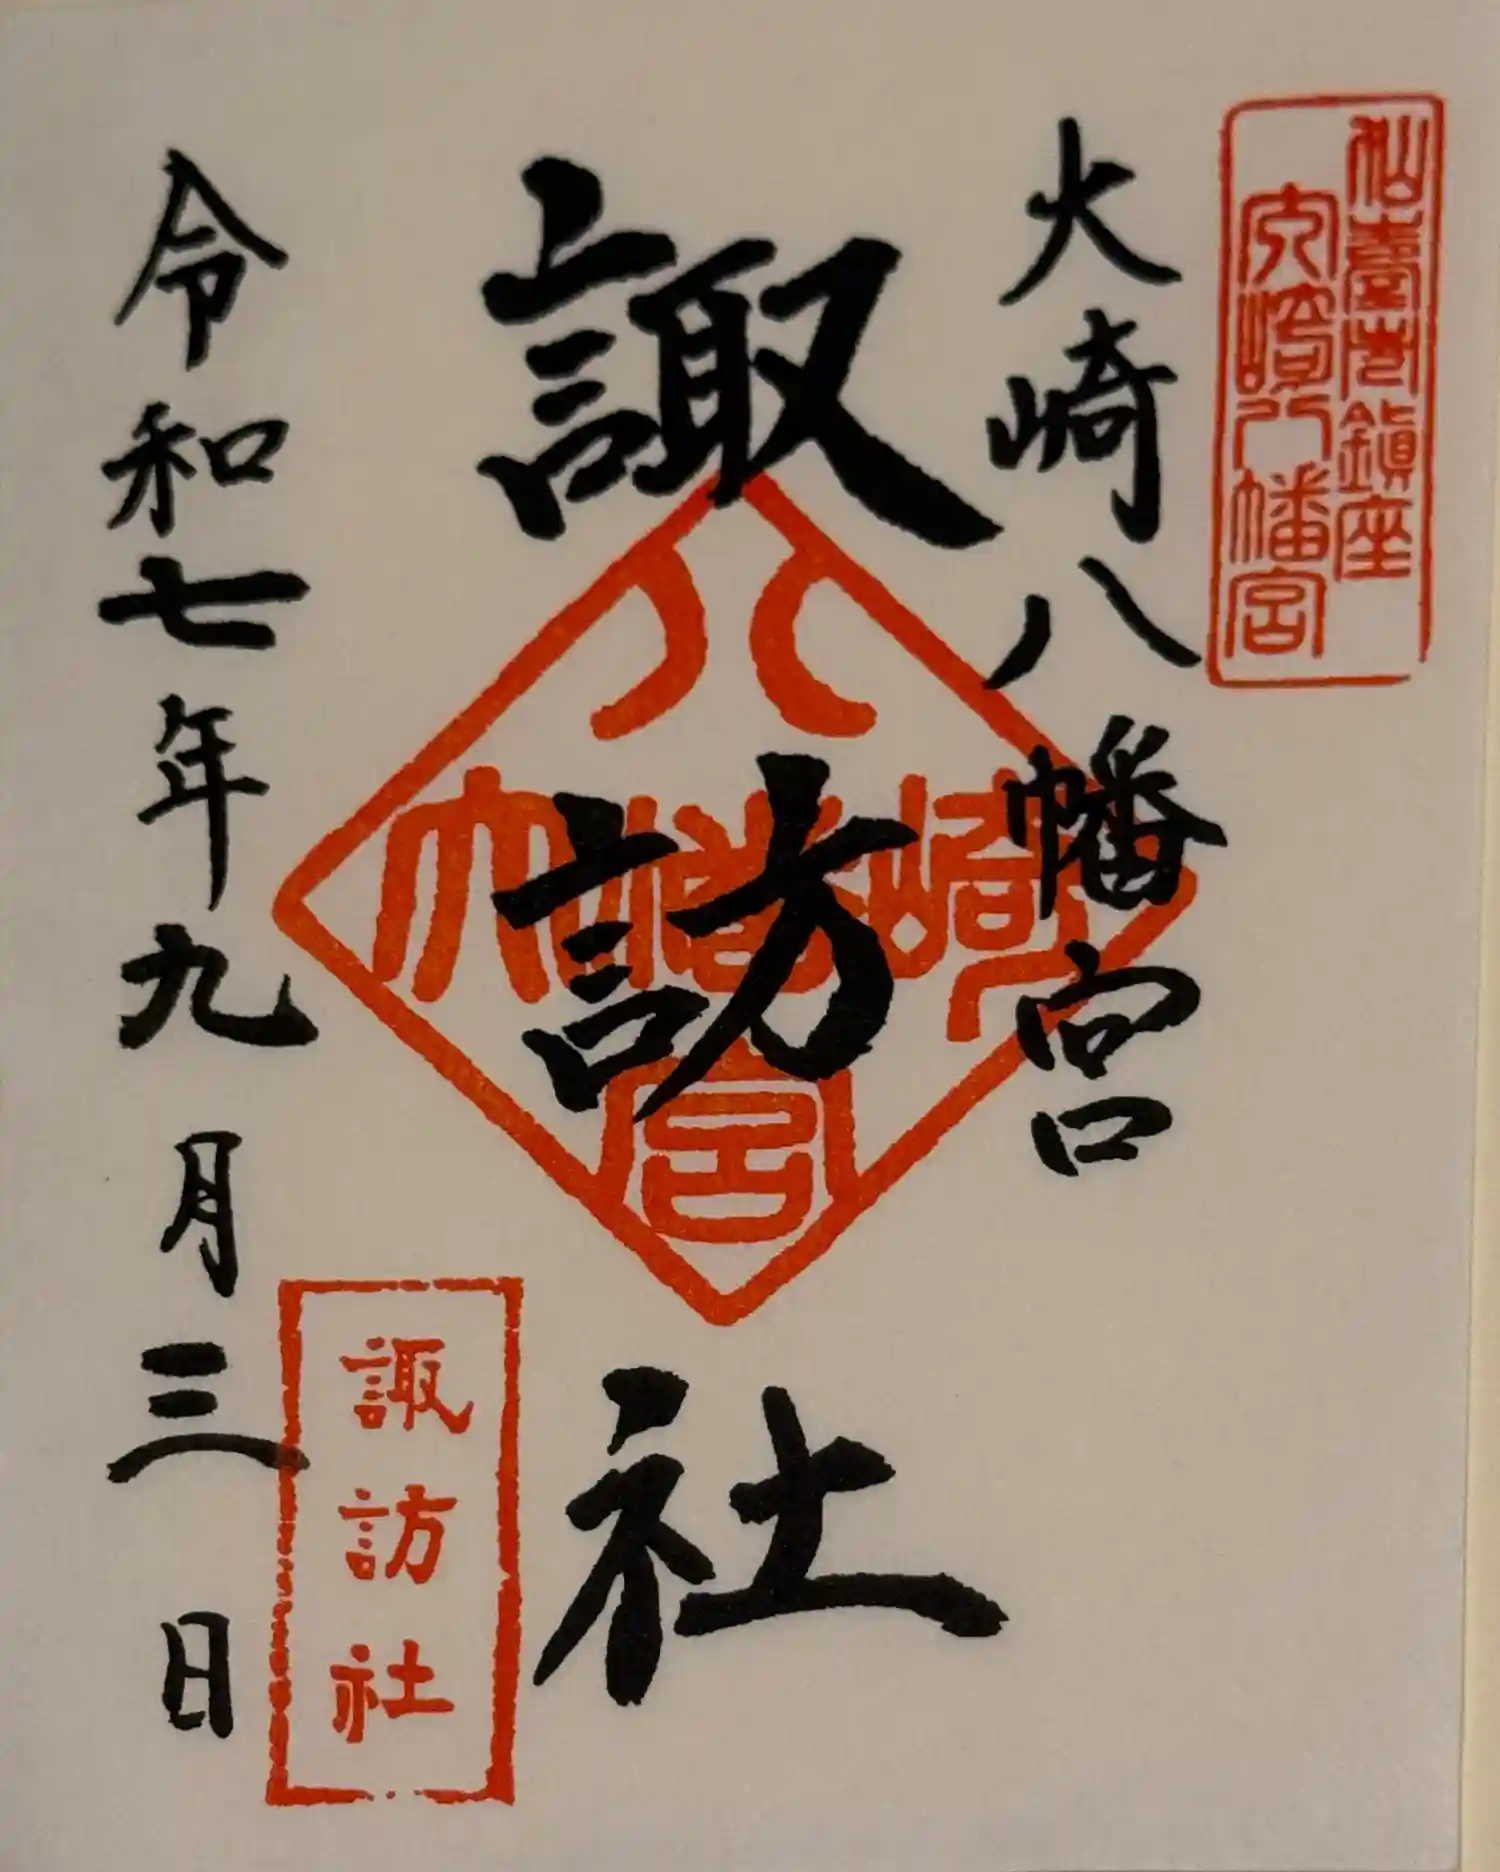 仙臺市鎮座
大崎八幡宮
大崎八幡宮
諏訪社
大崎八幡宮
諏訪社
令和七年九月三日